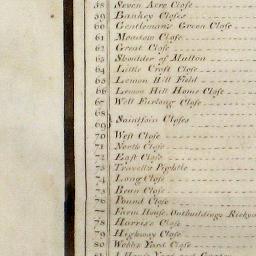 58 Seven Acre Close
59 Bankey Closes
60 Gentleman's Green Close
61 Meadow Close
62 Great Close
63 Shoulder of Mutton
64 Little Croft Close
65 Lemon Hill Field
66 Lemon Hill Home Close
67 Well Furlong Close
68
69 Saintfoin Closes
70 West Close
71 North Close
72 East Close
73 Pightle
74 Long Close
75 Close
76 Pound Close
77 Farm House, Outbuildings Rickya
78 Harris's Close
79 Highway Close
80 Webbs Yard Close
81 House Yard and Garden